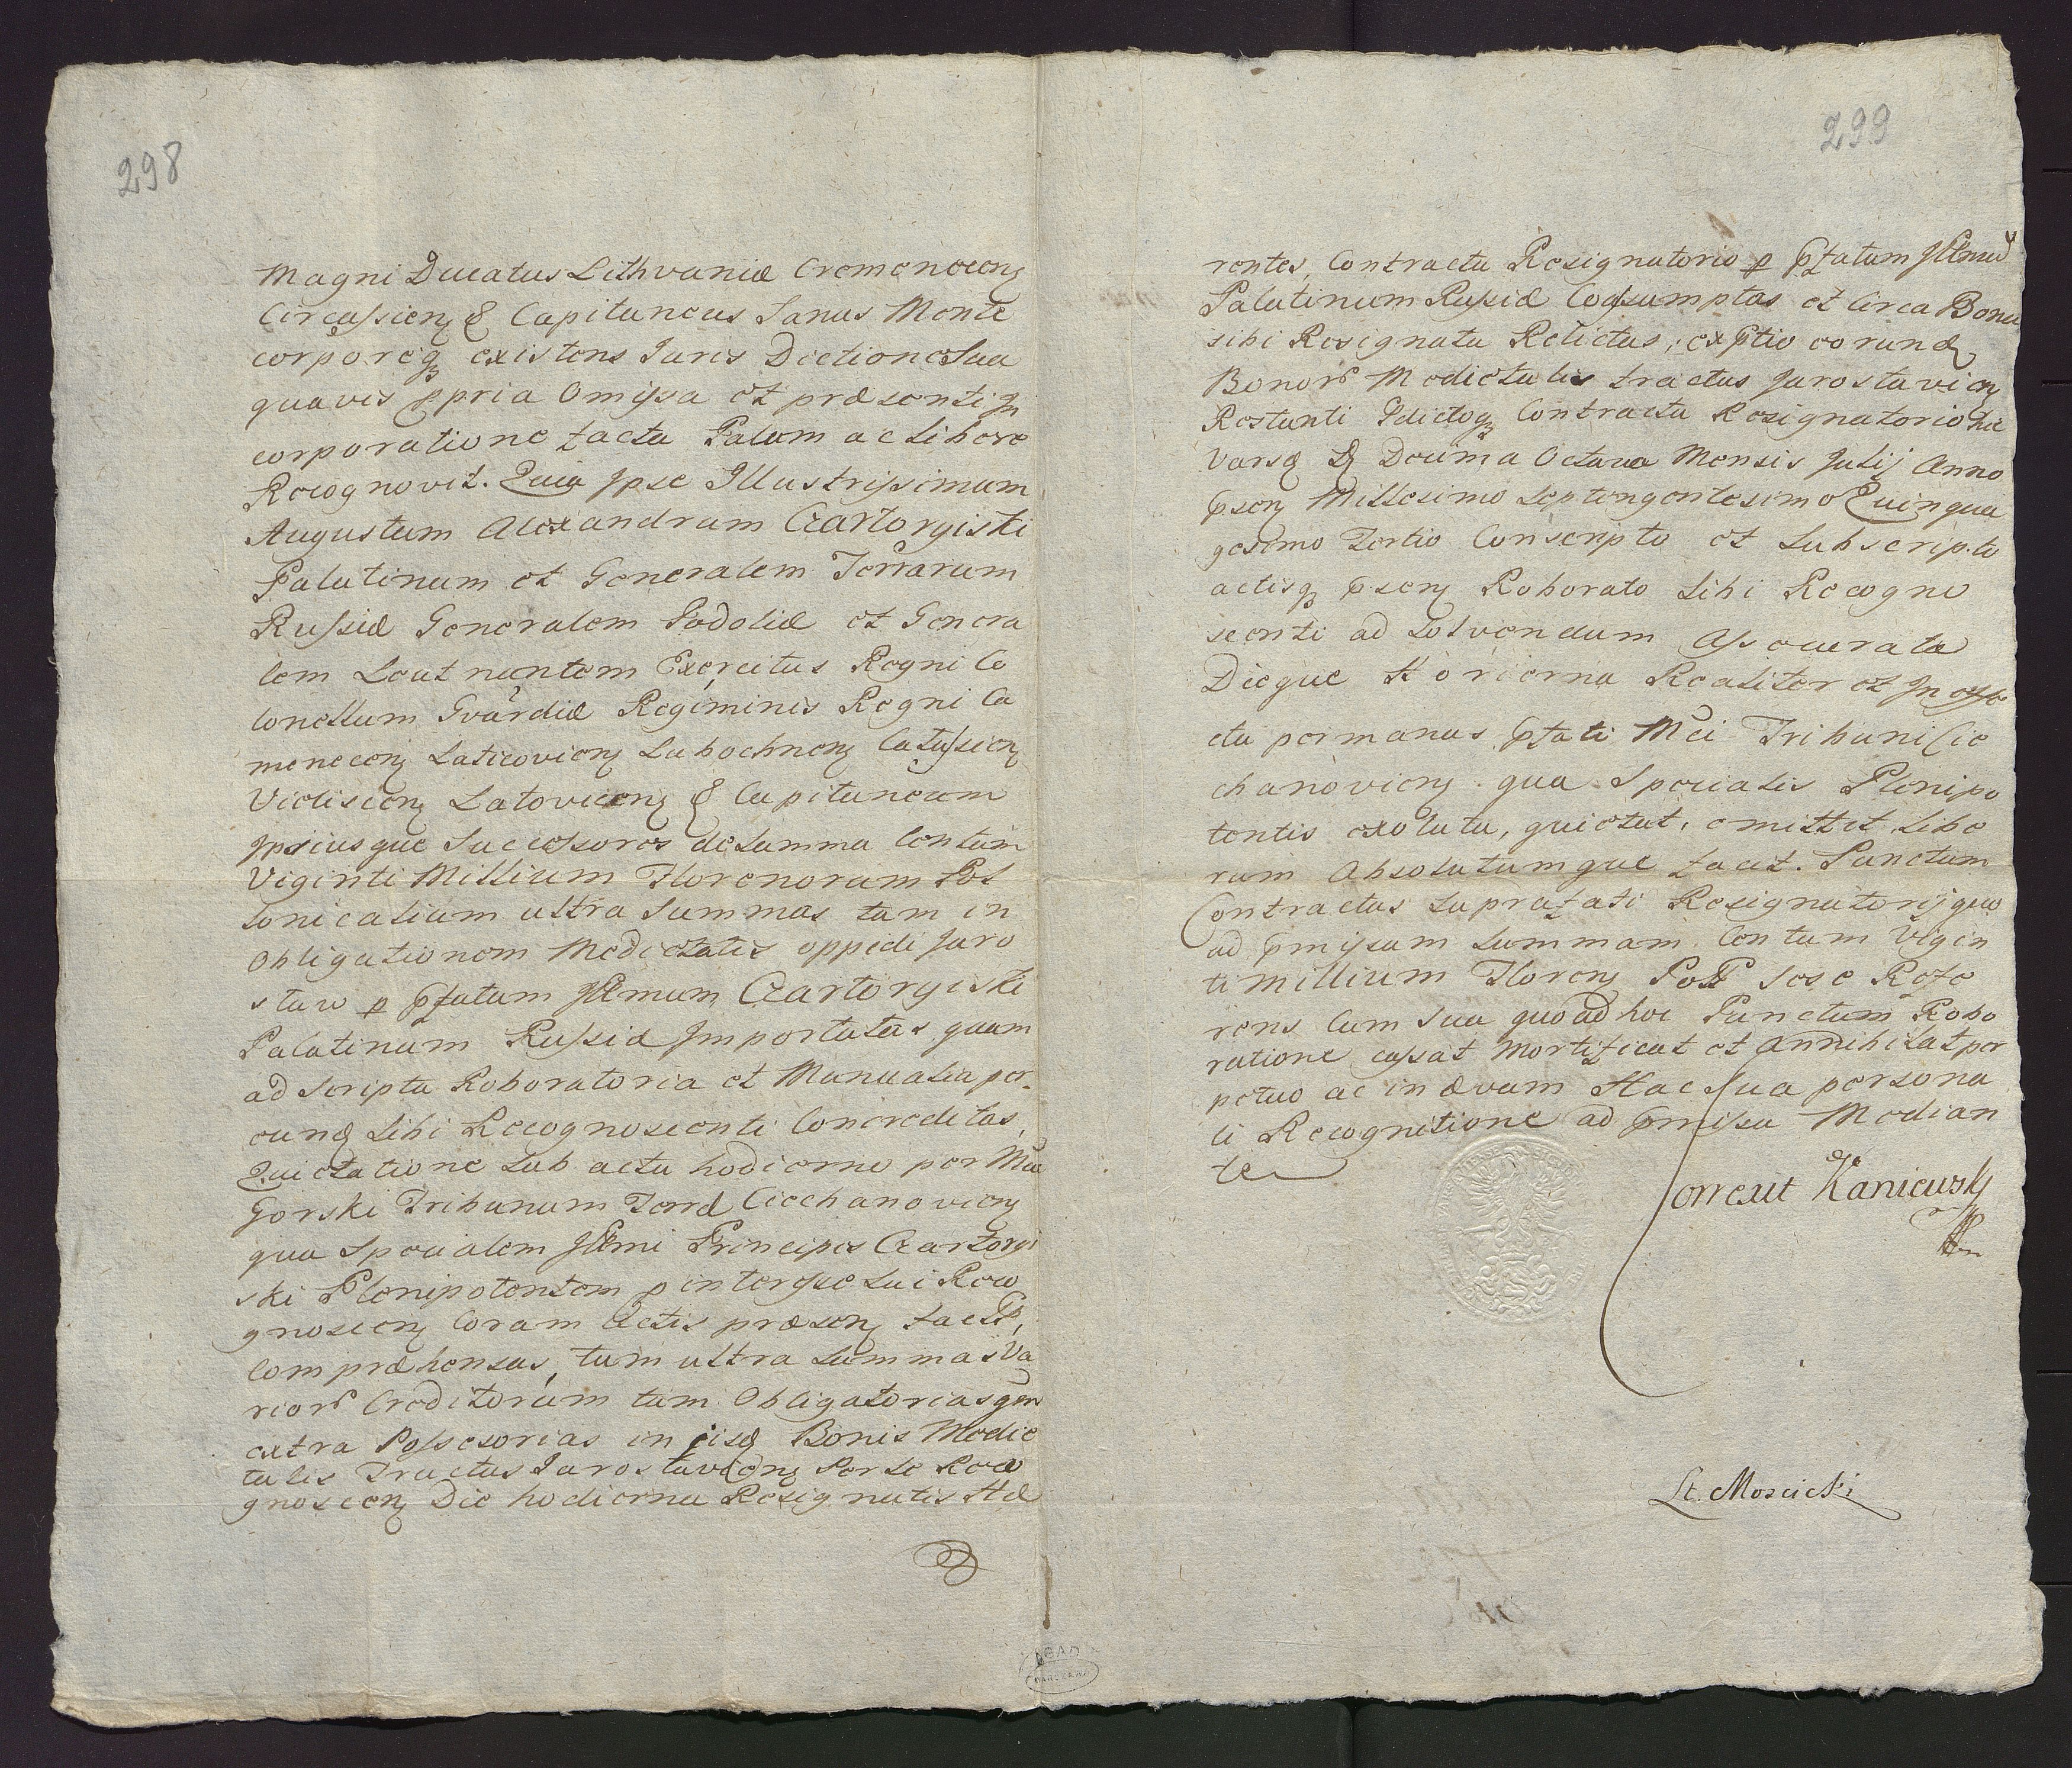 298
Magni Ducatus Lithvaniæ Cremenecen
Circassien & Capitaneus Sanus Mente
corporeq existens Juris Dictione Sua
quavis ppria Omissa et præsenti In
corporatione facta Palam ac Libere
Recognovit. Quia Ipse Illustrissimum
Augustum Alexandrum Czartoryiski
Palatinum et Generalem Terrarum
Russiæ Generalem Podoliæ et Genera
lem Leutnantem Exercitus Regni Co
lonellum Gvardiæ Regiminis Regni Ca
menecen Laticovien Lubochnen Calussien
Vielisien Latovicen & Capitaneum
Ipsiusque Successores de Summa Centum
Viginti Millium Florenorum Pol
lonicalium ultra Summas tam in
Obligationem Medietatis oppidi Jaro
slaw p Pfatum Illmum Czartoryiski
Palatinum Russiæ Importatas quam
ad Scripta Roboratoria et Manualia per
eund Sibi Recognoscenti Concreditas,
Quietatione Sub actu hodierno per
Gorski Tribunum Terræ Ciechanovien
qua Specialem Illmi Principis Czartoryi
ski Plenipotentem p interesse Sui Reco
gnoscen Coram Actis præsen fact,
Compræhensas, tum ultra Summas Va
rior Creditorum tam Obligatorias qm
extra Possesorias in iisd Bonis Medie
tatis Tractus Jaroslavien Per Se Reco
gnoscen Die hodierna Resignatis Hæ
299
rentes, Contractu Resignatorio p Pfatum Illmum
Palatinum Russiæ Coassumptas et Circa Bona
sibi Resignata Relictas, ex Ptio eorund
Bonor Medietatis tractus Jaroslavien
Restanti Pdictoq Contractu Resignatorio hic
Varsæ D Decima Octava Mensis Julij Anno
Psen Millesimo Septengentesimo Quinqua
gesimo Tertio Conscripto et Subscripto
actisq Psen Roborato Sibi Recogno
scenti ad Solvendum Assecurata
Dieque Hodierna Realiter et In effe
ctu per manus Pfati Mci Tribuni Cie
chanovien qua Specialis Plenipo
tentis exoluta, quietat, emittit, Libe
rum Absolutumque facit. Punctum
Contractus Suprafati Resignatorij quo
ad Pmissam Summam Centum Vigin
ti millium Floren Poll sese Refe
rens Cum Sua quo ad hoc Punctum Robo
ratione cassat Mortificat et Annihilat per
petuo ac in ævum Hac Sua persona
li Recognitione ad Pmissa Median
te
Correxit Kaniewsky
Lt. Moscicki
AGAD
WARSZAWA